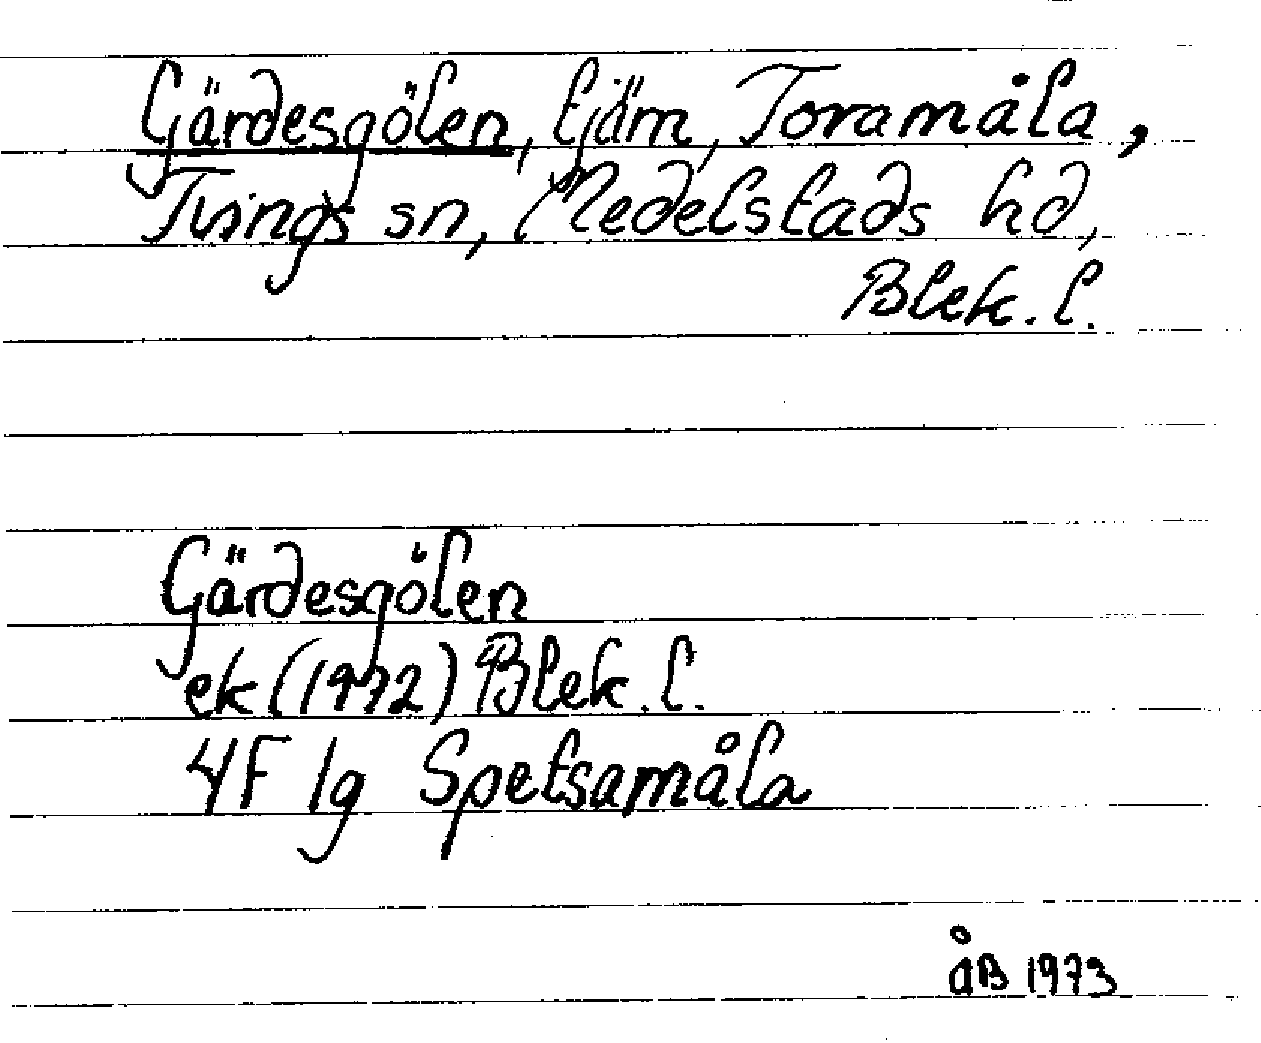 Gärdesgölen, tjärn, Toramåla,
Tvings sn, Medelstads hd,
Blek. l.
Gärdesgölen
ek (1972) Blek. l.
4F 1g Spetsamåla
ÅB 1973